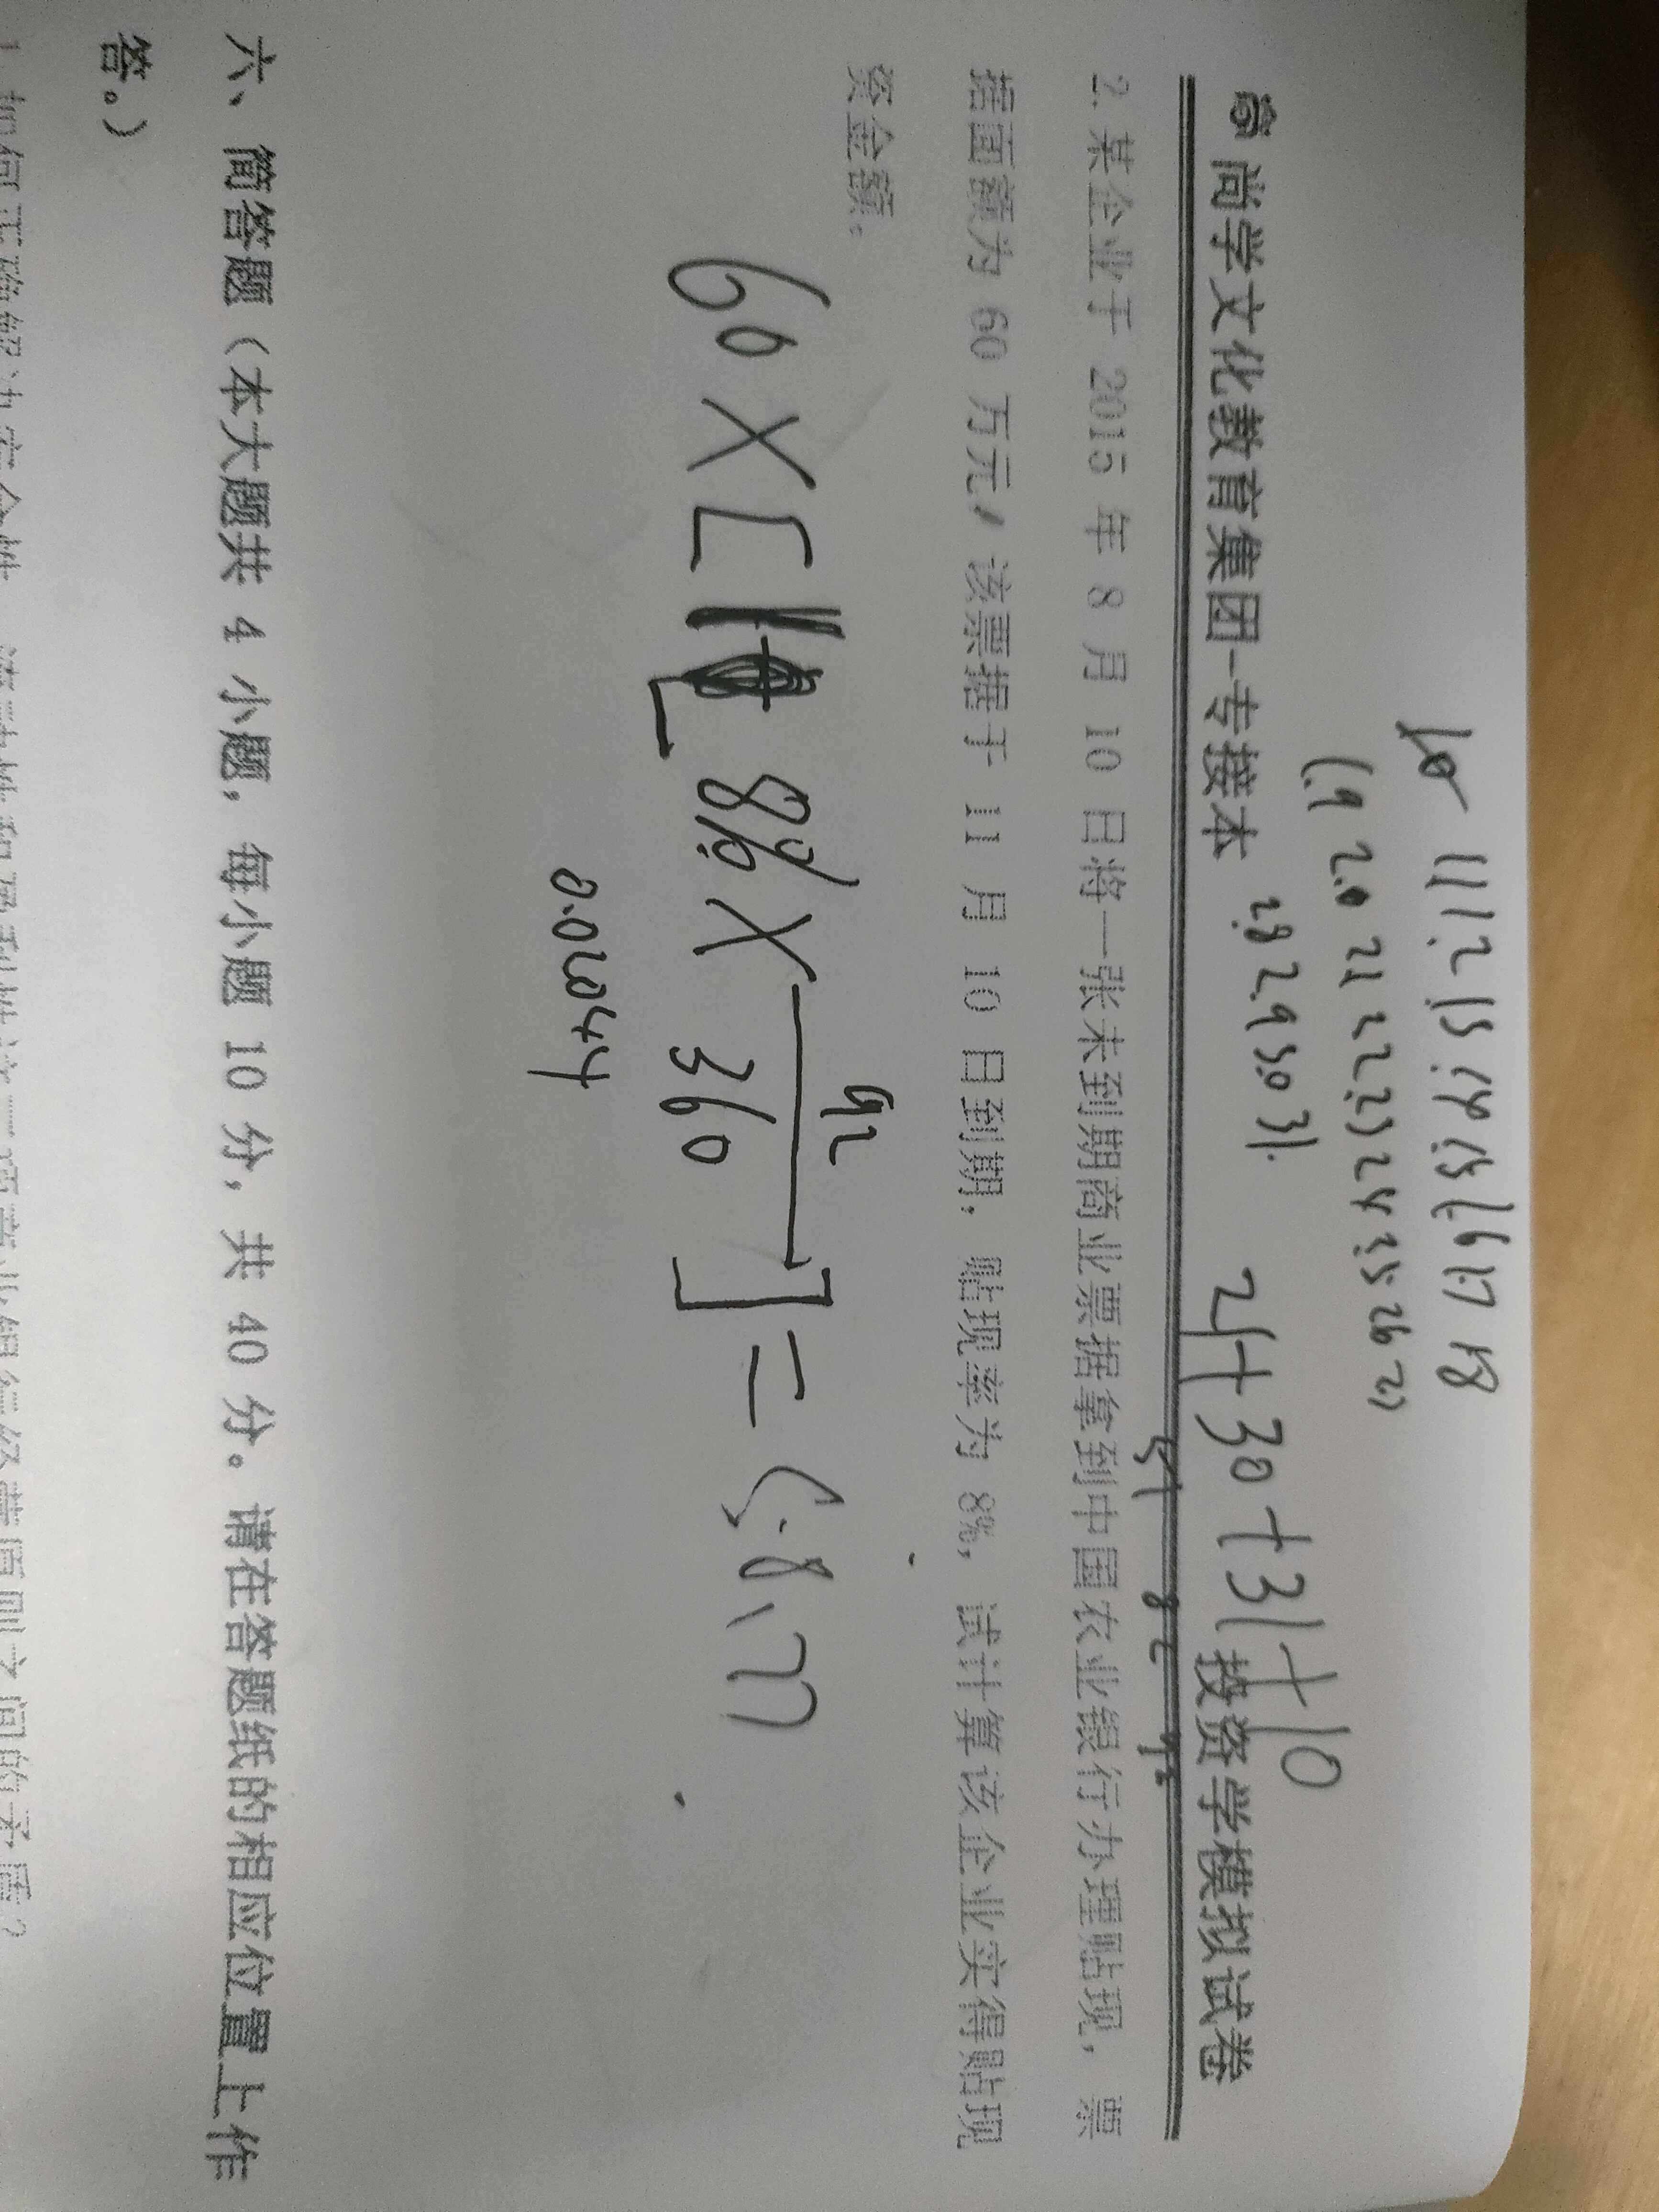 10 11 12 13 14 15 16 17 18
19 20 21 22 23 24 25 26 27
28 29 30 31
21+30+31+10
尚学文化教育集团-专接本 投资学模拟试卷
2. 某企业于 2015 年 8 月 10 日将一张未到期商业票据拿到中国农业银行办理贴现，票
据面额为 60 万元，该票据于 11 月 10 日到期，贴现率为 8%，试计算该企业实得贴现
资金额。
60×[1-8%×92/360]=58.77
0.02044
六、简答题（本大题共 4 小题，每小题 10 分，共 40 分。请在答题纸的相应位置上作
答。）